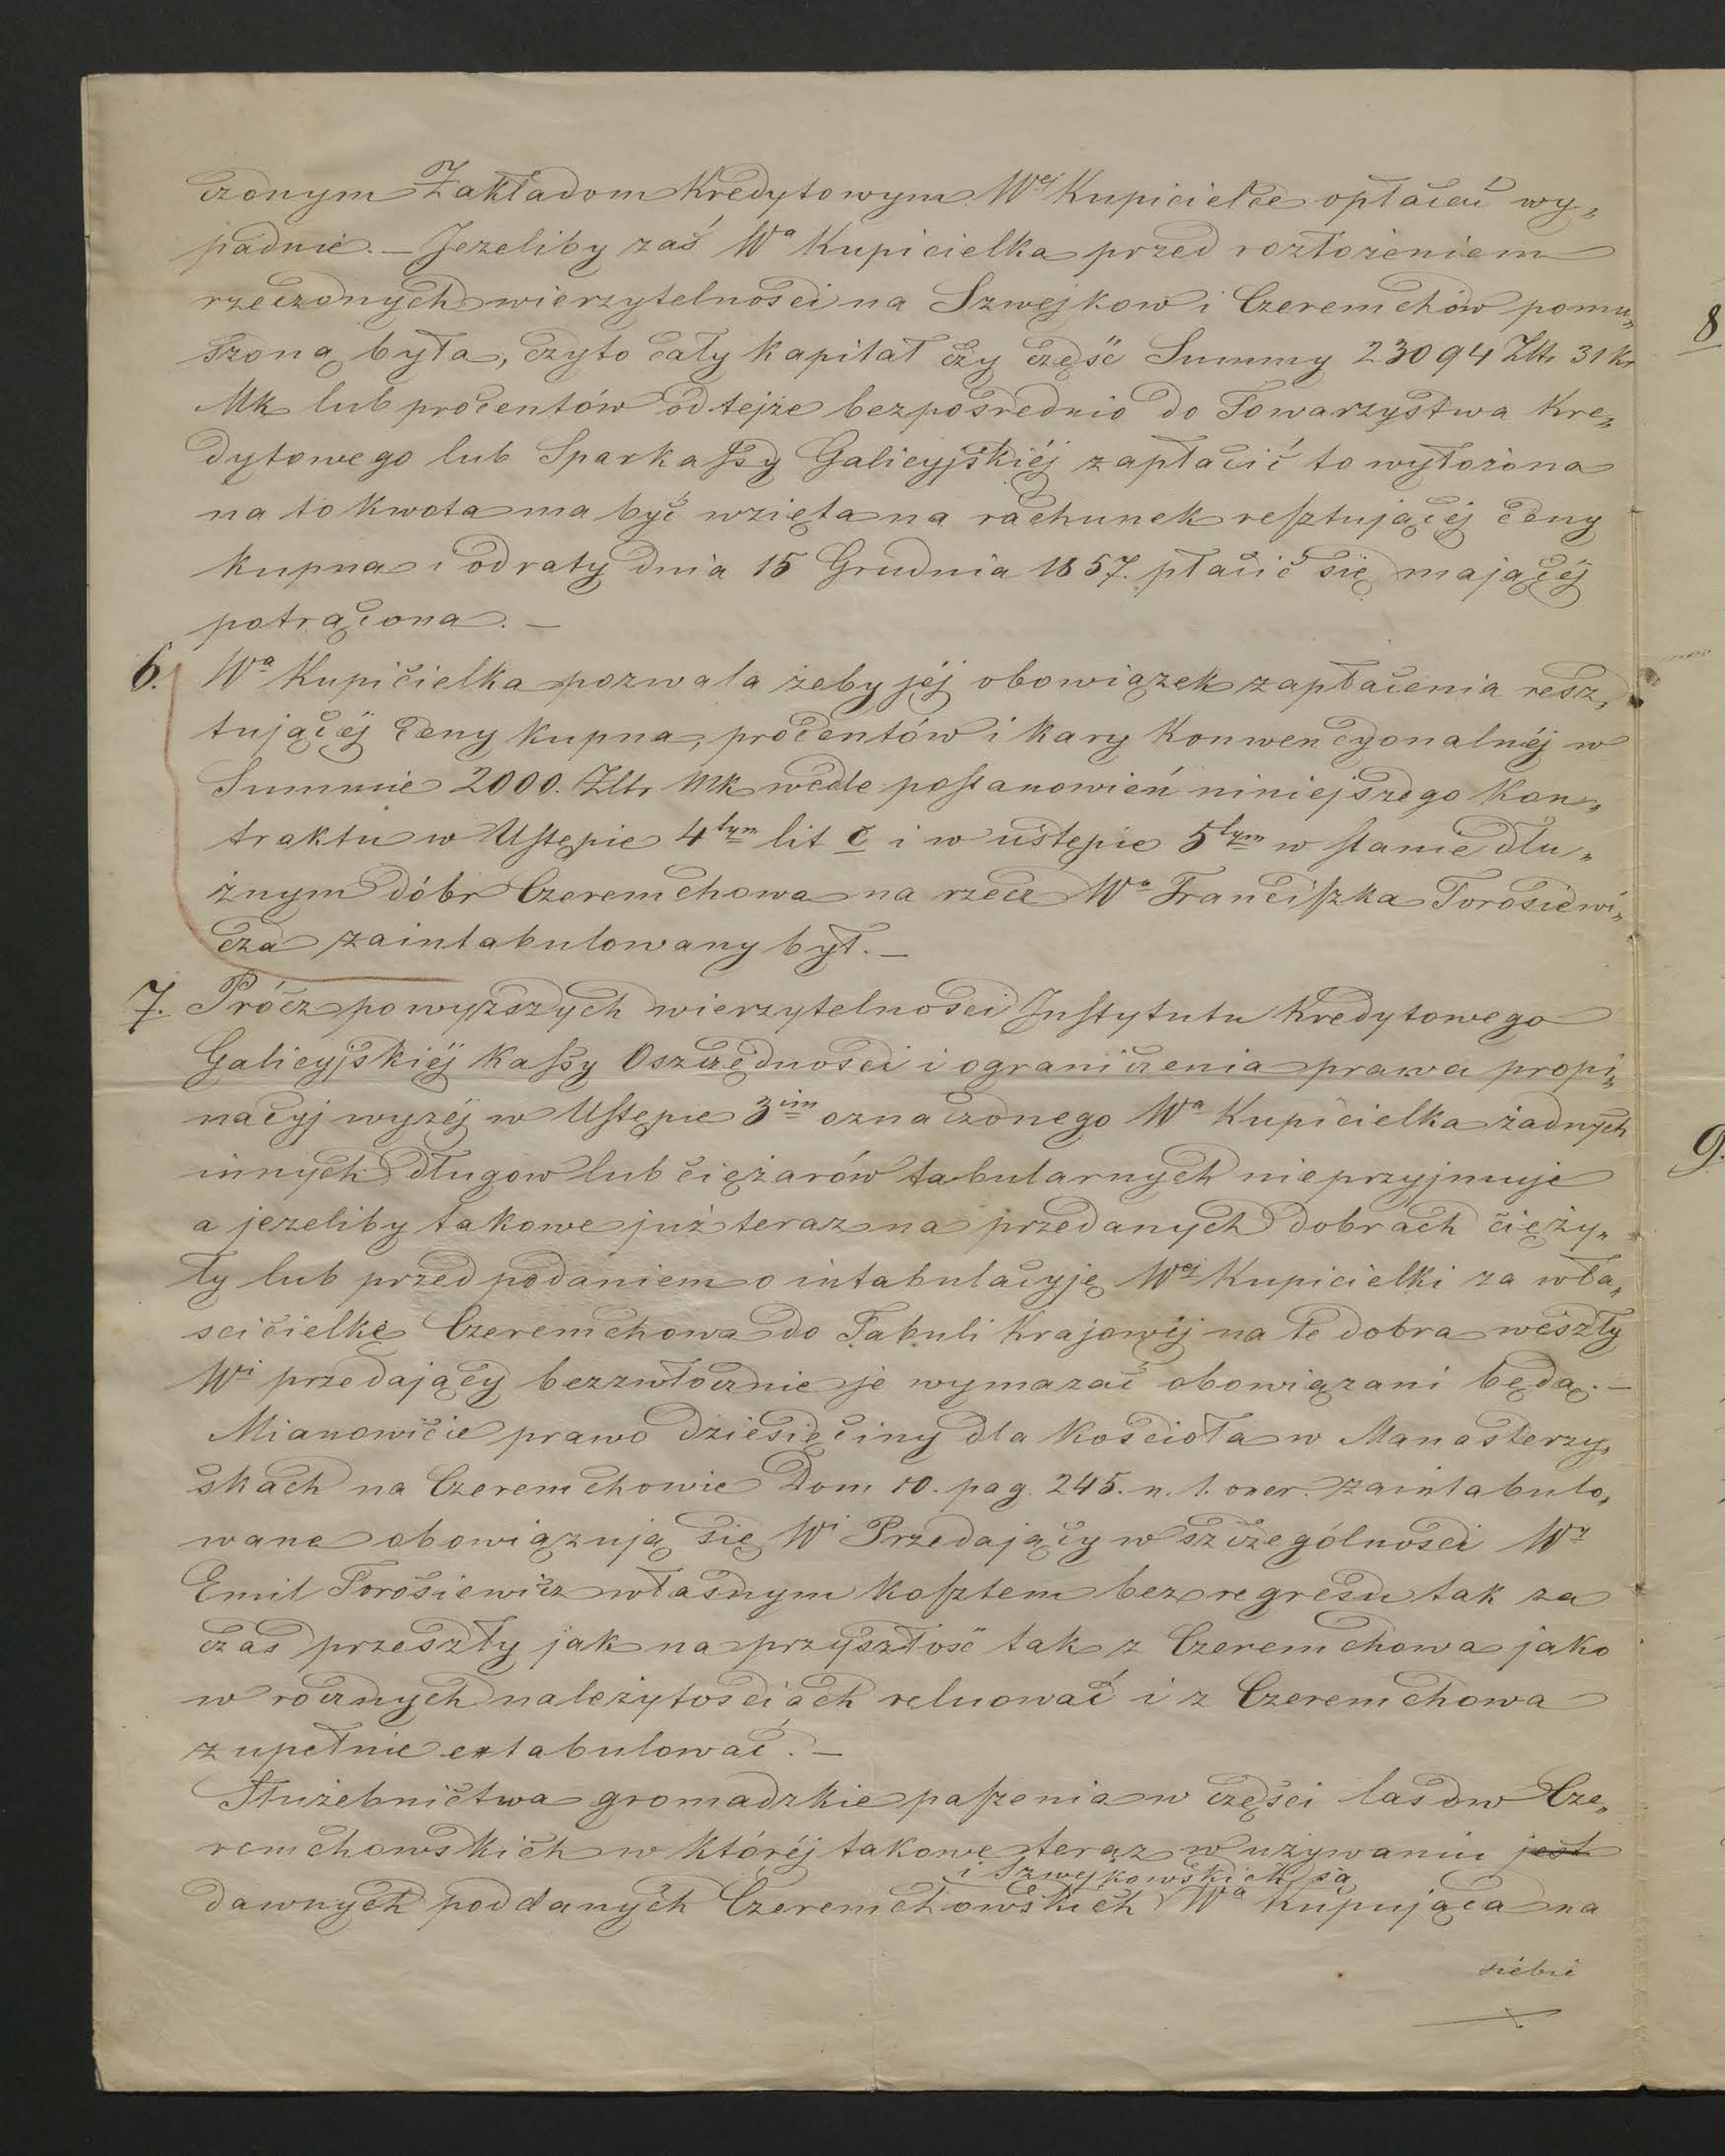 czonym Zakładom Kredytowym Wej Kupicielce opłacać wy„
padnie. – Jezeliby zaś Wa Kupicielka przed rozłożeniem
rzeczonych wierzytelności na Szwejkow i Czeremchów pomu„
szoną była, czyto cały kapitał czy część Summy 23094 Zltr 31 kr
Mk lub procentów od tejże bezpośrednio do Towarzystwa Kre„
dytowego lub Sparkassy Galicyjskiéj zapłacić to wyłożona
na to kwota ma być wzięta na rachunek resztującéj ceny
kupna i od raty dnia 15 Grudnia 1857. płacić się mającéj
potrącona. –
6. Wa Kupicielka pozwala żeby jéj obowiązek zapłacenia resz„
tującéj ceny kupna, procentów i kary konwencyonalnéj w
Summie 2000. Zltr Mk wedle postanowień niniejszego Kon„
traktu w Ustępie 4tym lit c i w ustępie 5tym w stanie dłu„
żnym dóbr Czeremchowa na rzecz Wo Franciszka Torosiewi„
cza zaintabulowany był. –
7. Prócz powyższych wierzytelności Instytutu Kredytowego
Galicyjskiéj Kassy Oszczędności i ograniczenia prawa propi„
nacyj wyzéj w Ustępie 3im oznaczonego Wa Kupicielka żadnych
innych długow lub ciężarów tabularnych nie przyjmuje
a jezeliby takowe już teraz na przedanych dobrach cięży„
ły lub przed podaniem o intabulacyję Wej Kupicielki za wła„
scicielkę Czeremchowa do Tabuli Krajowéj na te dobra weszły
Wi przedający bezzwłocznie je wymazać obowiązani będą. –
Mianowicie prawo dziesięciny dla Kościoła w Manasterzy„
skach na Czeremchowie Dom 10. pag. 245. n. 1. oner. zaintabulo„
wane obowiązują się Wi Przedający w szczególności Wy
Emil Torosiewicz własnym kosztem bez regresu tak za
czas przeszły jak na przyszłość tak z Czeremchowa jako
w rocznych należytościach reluować i z Czeremchowa
zupełnie extabulować. –
Służebnictwa gromadzkie paszenia w części lasow Cze„
remchowskich w któréj takowe teraz w używaniu jest
i Szwejkowskich są
dawnych poddanych Czeremchowskich Wa Kupująca na
siebie